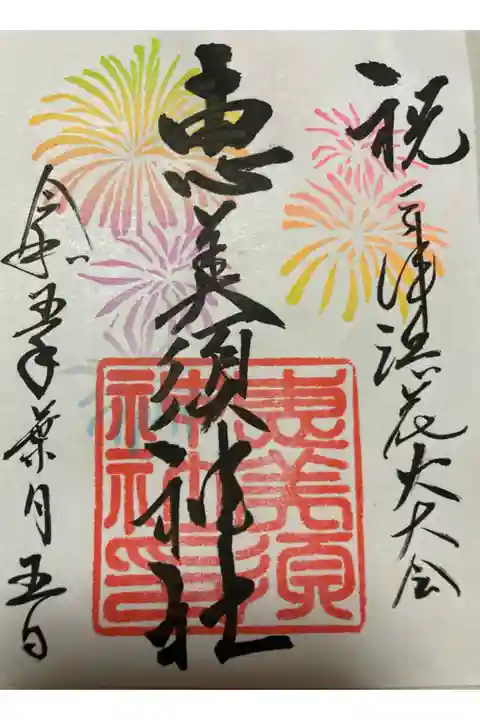 祝 三津浜花火大会
恵美須神社
令和五年葉月五日
恵美須
神社印